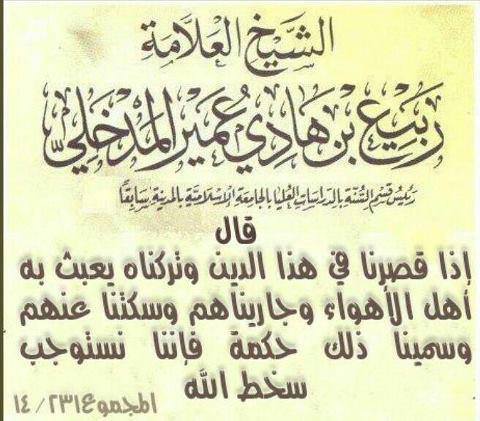 الشَّيخ العَلَّامَة
رَبيع بن هَادي عُمير المَدخَليّ
رئيس قسم السُّنَّة بالدراسات العُليا بالجامعة الإسلاميَّة بالمدينة سَابقًا
قال
إذا قصرنا في هذا الدين وتركناه يعبث به
أهل الأهواء وجاريناهم وسكتنا عنهم
وسمينا ذلك حكمة فإننا نستوجب
سخط الله
المجموع ١٤/٢٣١